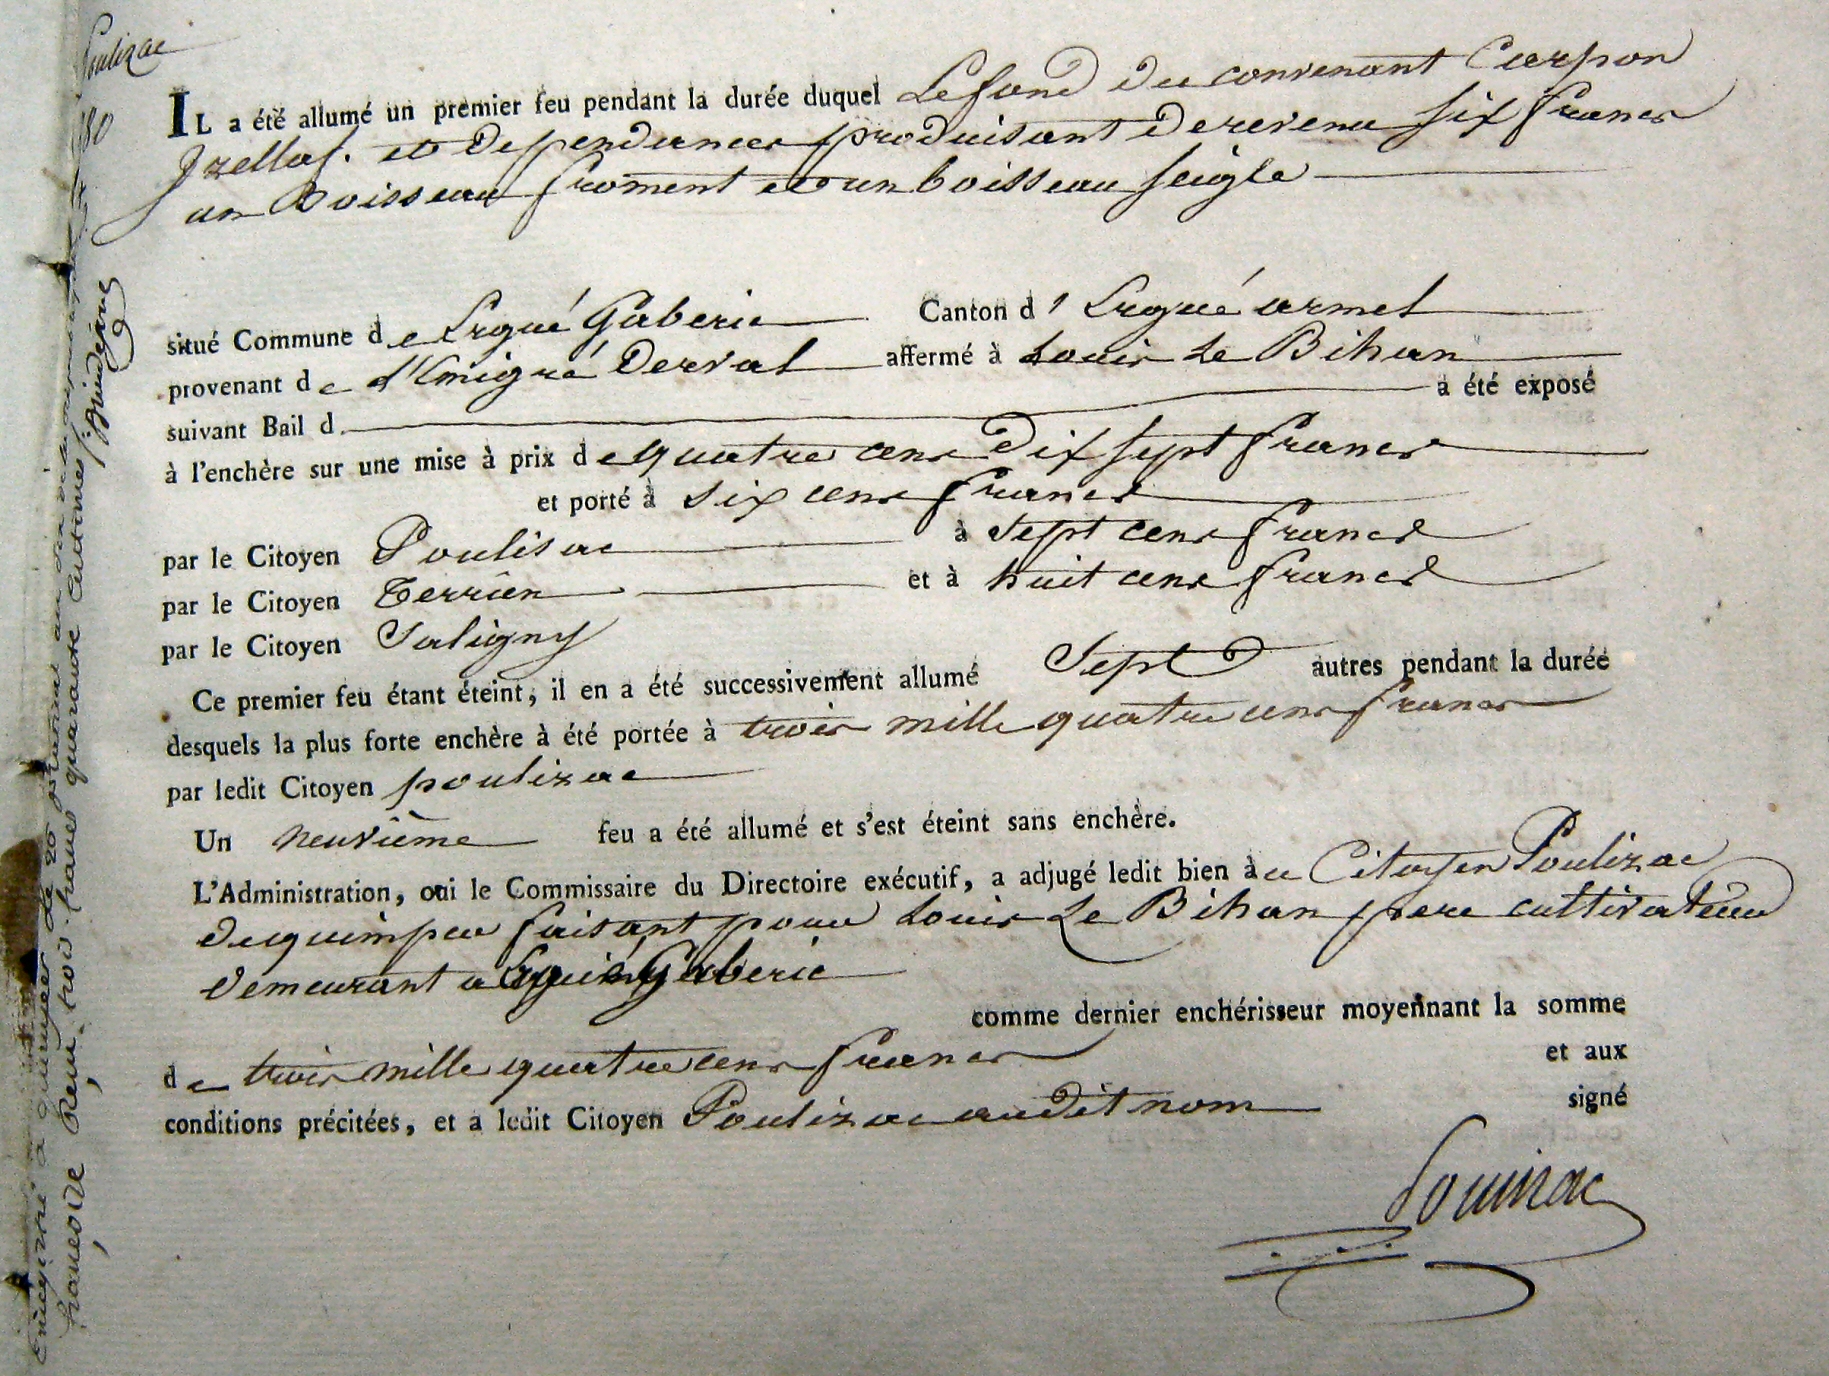 Poulizac
IL a été allumé un premier feu pendant la durée duquel Le fond du convenant Carpon
Izellaf. et dependances produisant de revenu six francs
un Boisseau froment et un boisseau seigle
situé Commune de Ergué Gaberic Canton d' Ergué armel
provenant de l'Emigré Derval affermé à Louis Le Bihan
suivant Bail d a été exposé
à l'enchère sur une mise à prix de quatre cens dix sept francs
et porté à six cens francs
par le Citoyen Poulisac à sept cens francs
par le Citoyen Terrien et à huit cens francs
par le Citoyen Saligny
Ce premier feu étant éteint, il en a été successivement allumé Sept autres pendant la durée
desquels la plus forte enchère à été portée à trois mille quatre cens francs
par ledit Citoyen poulizac
Un neuvième feu a été allumé et s'est éteint sans enchère.
L'Administration, oui le Commissaire du Directoire exécutif, a adjugé ledit bien à au Citoyen Poulizac
de quimper faisant pour Louis Le Bihan pere cultivateur
demeurant a Ergué Gaberic
comme dernier enchérisseur moyennant la somme
de trois mille quatre cens francs et aux
conditions précitées, et a ledit Citoyen Poulizac audit nom signé
Poulizac
Enregistré à quimper le 20 prairial an six
Reçu trois francs quarante centimes